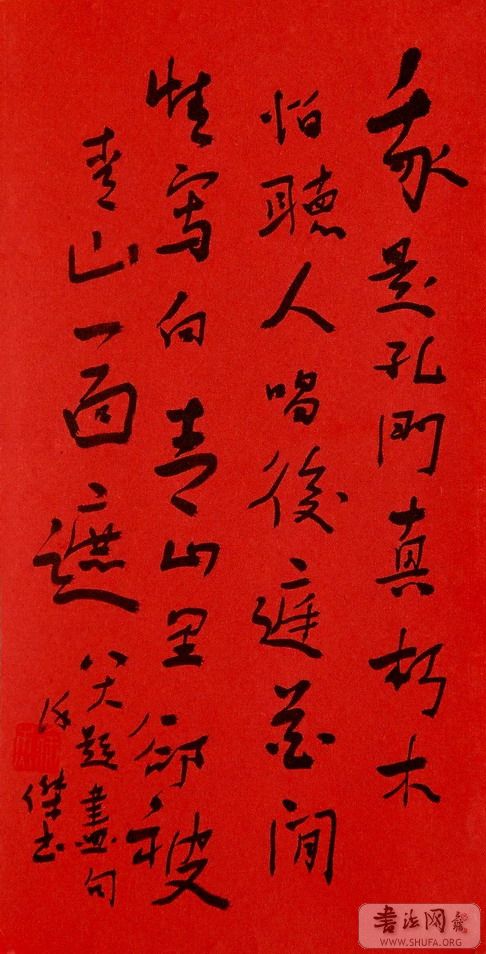 我是孔門真朽木
怕聽人唱後庭花閒
情寫向青山里卻被
青山一面遮
八大題畫句
傑书
書法网
WWW.SHUFA.ORG